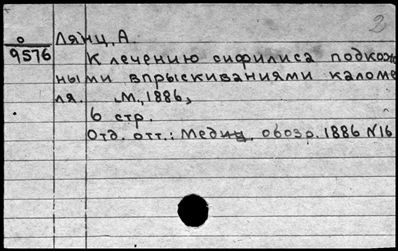 2
о
9576
Лянц, А.
К лечению сифилиса подкож
ными впрыскиваниями каломе
ля. М., 1886,
6 стр.
Отд. отт.: Медиц. обозр. 1886 N16